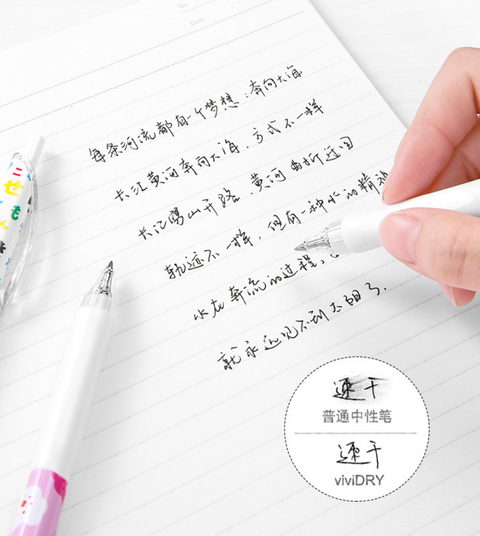 No
Date
每条河流都有一个梦想：奔向大海
长江黄河奔向大海，方式不一样
长江劈山开路，黄河曲折迂回
轨迹不一样，但有一种水的精神
水在奔流的过程，
就永远见不到太阳了．
速干
普通中性笔
速干
viviDRY